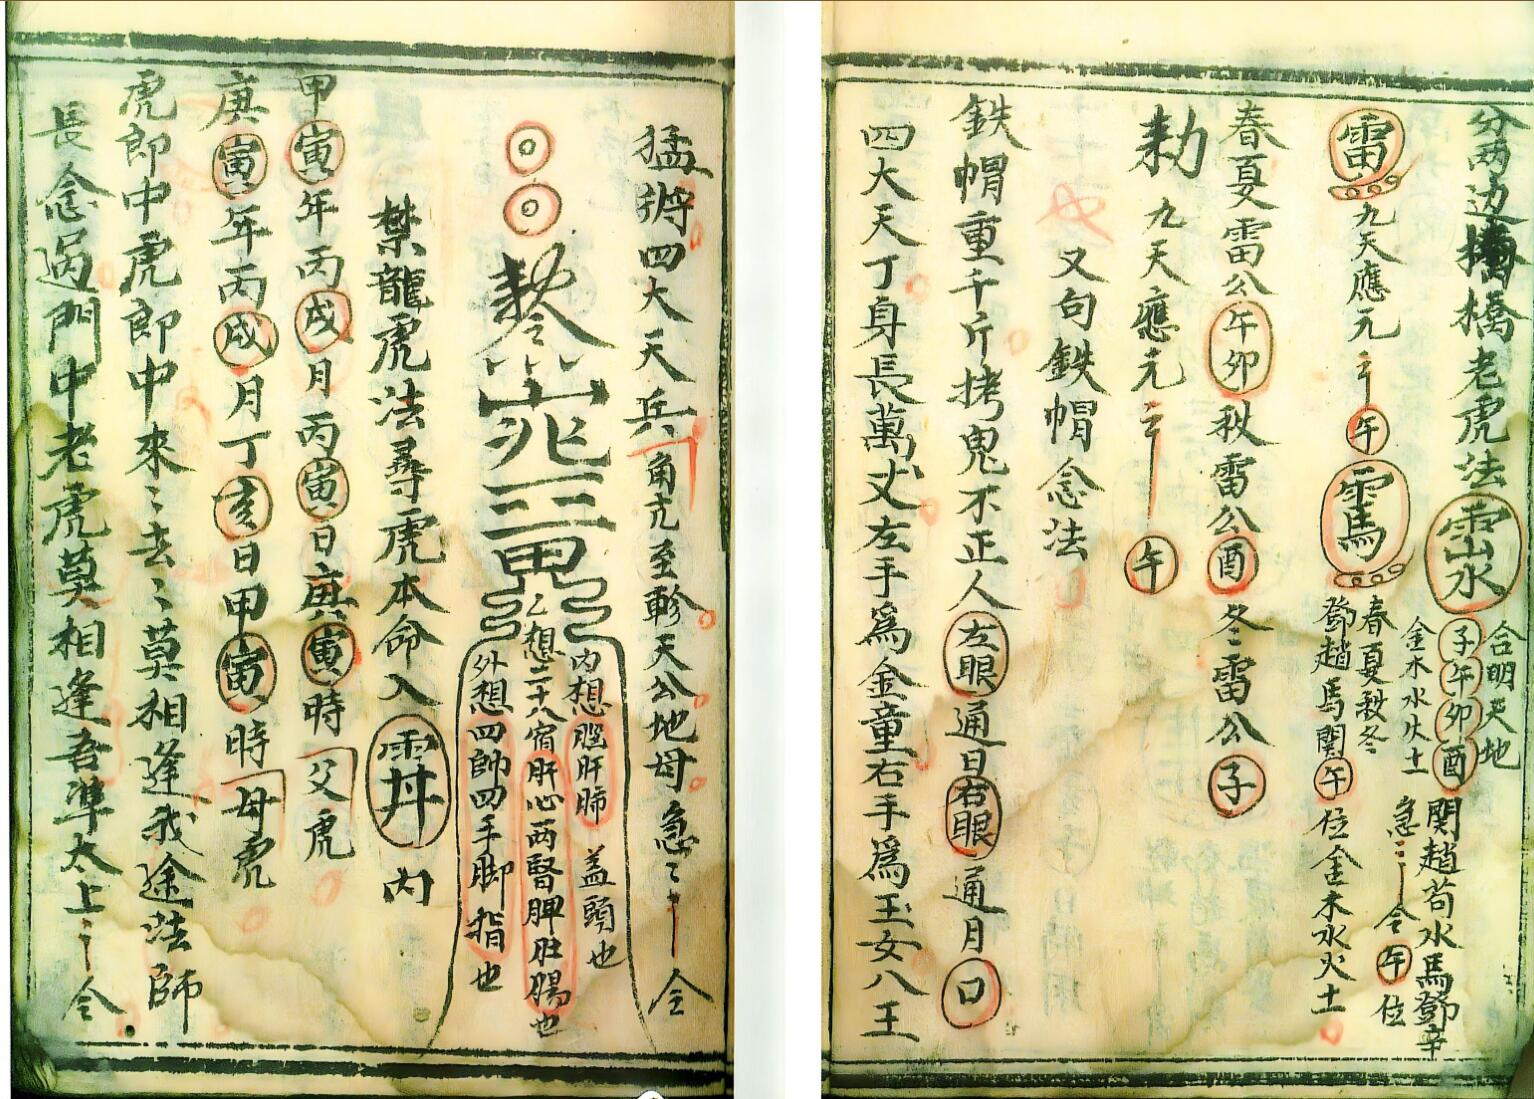 分两边擒橋老虎法
合明天地
子午卯酉
金木水火土
関趙苟水馬鄧辛
急〻令午位
雷九天應元〻午
春夏秋冬
鄧趙馬関午位金木水火土
春夏雷公午卯秋雷公酉冬〻雷公子
勅九天應元〻午
又句鉄帽念法
鉄帽重千斤拷鬼不正人左眼通日右眼通月口
四大天丁身長萬丈左手為金童右手為玉女八王
猛將四大天兵角亢至軫天公地母急〻令
内想 肝肺 蓋頭也
乙想二十八宿肝心両腎脾肚腸也
外想四帥四手脚指也
禁龍虎法尋虎本命入 内
甲寅年丙戌月丙寅日庚寅時父虎
庚寅年丙戌月丁亥日甲寅時母虎
虎郎中虎郎中來〻去〻莫相逢我途法師
長念過門中老虎莫相逢吾準太上〻令